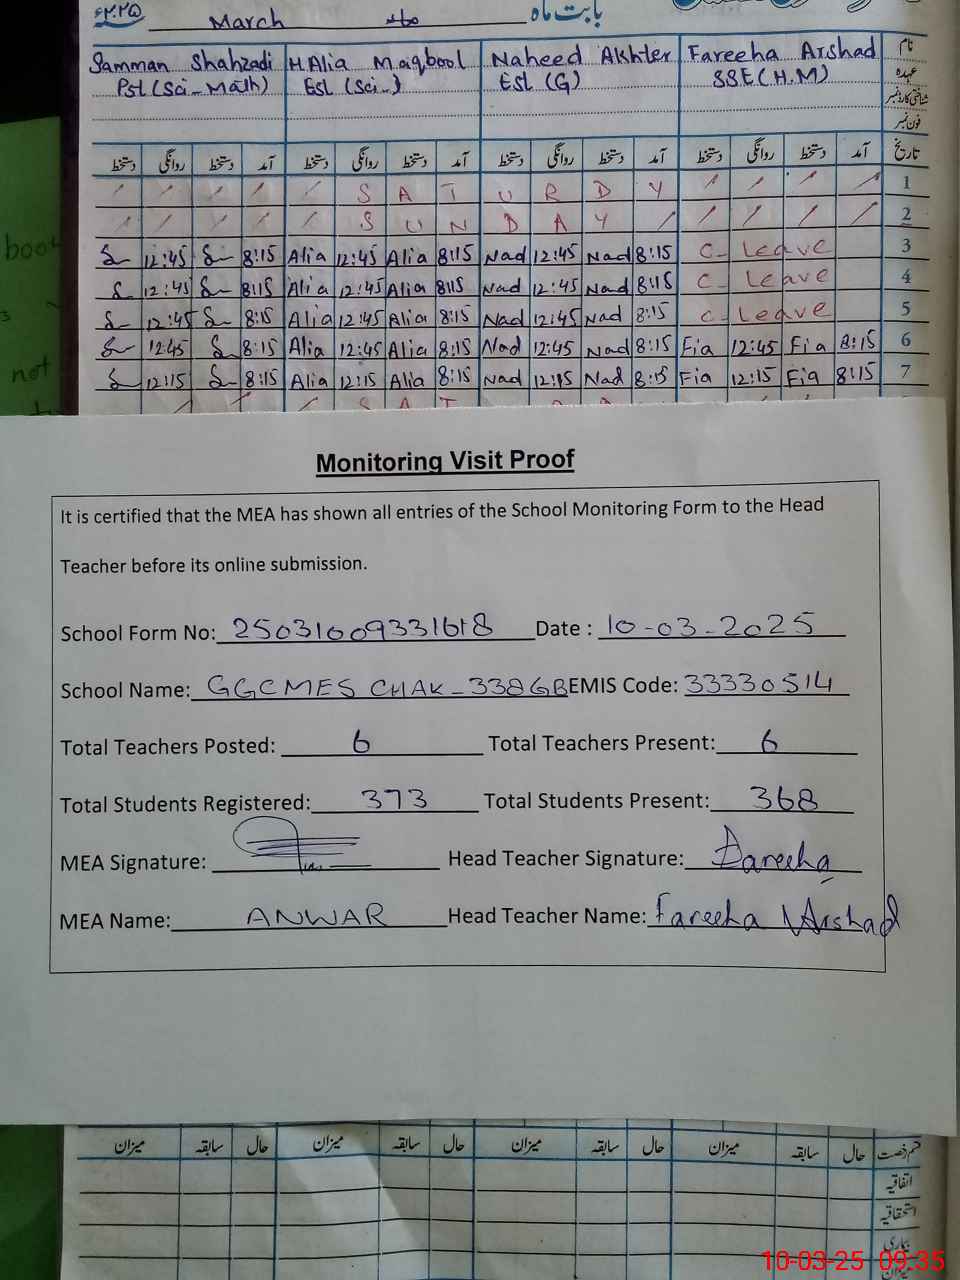 ۲۰۲۵ء March ماہ بابت ماہ
Samman Shahzadi H.Alia Maqbool Naheed Akhter Fareeha Arshad نام
Pst (Sci-Math) Est (Sci-) Est (G) SSE (H.M) عہدہ
شناختی کارڈ نمبر
فون نمبر
دستخط روانگی دستخط آمد دستخط روانگی دستخط آمد دستخط روانگی دستخط آمد دستخط روانگی دستخط آمد تاریخ
S A T U R D Y 1
S U N D A Y 2
12:45 8:15 Alia 12:45 Alia 8:15 Nad 12:45 Nad 8:15 C- Leave 3
12:45 8:15 Alia 12:45 Alia 8:15 Nad 12:45 Nad 8:15 C- Leave 4
12:45 8:15 Alia 12:45 Alia 8:15 Nad 12:45 Nad 8:15 C- Leave 5
12:45 8:15 Alia 12:45 Alia 8:15 Nad 12:45 Nad 8:15 Fia 12:45 Fia 8:15 6
12:15 8:15 Alia 12:15 Alia 8:15 Nad 12:15 Nad 8:15 Fia 12:15 Fia 8:15 7
not
Monitoring Visit Proof
It is certified that the MEA has shown all entries of the School Monitoring Form to the Head
Teacher before its online submission.
School Form No: 25031009331618 Date : 10-03-2025
School Name: GGCMES CHAK-338GB EMIS Code: 33330514
Total Teachers Posted: 6 Total Teachers Present: 6
Total Students Registered: 373 Total Students Present: 368
MEA Signature: Head Teacher Signature: Fareeha
MEA Name: ANWAR Head Teacher Name: Fareeha Arshad
میزان سابقہ حال میزان سابقہ حال میزان سابقہ حال میزان سابقہ حال قسم رخصت
اتفاقیہ
استحقاقیہ
بیماری
میزان
10-03-25 09:35